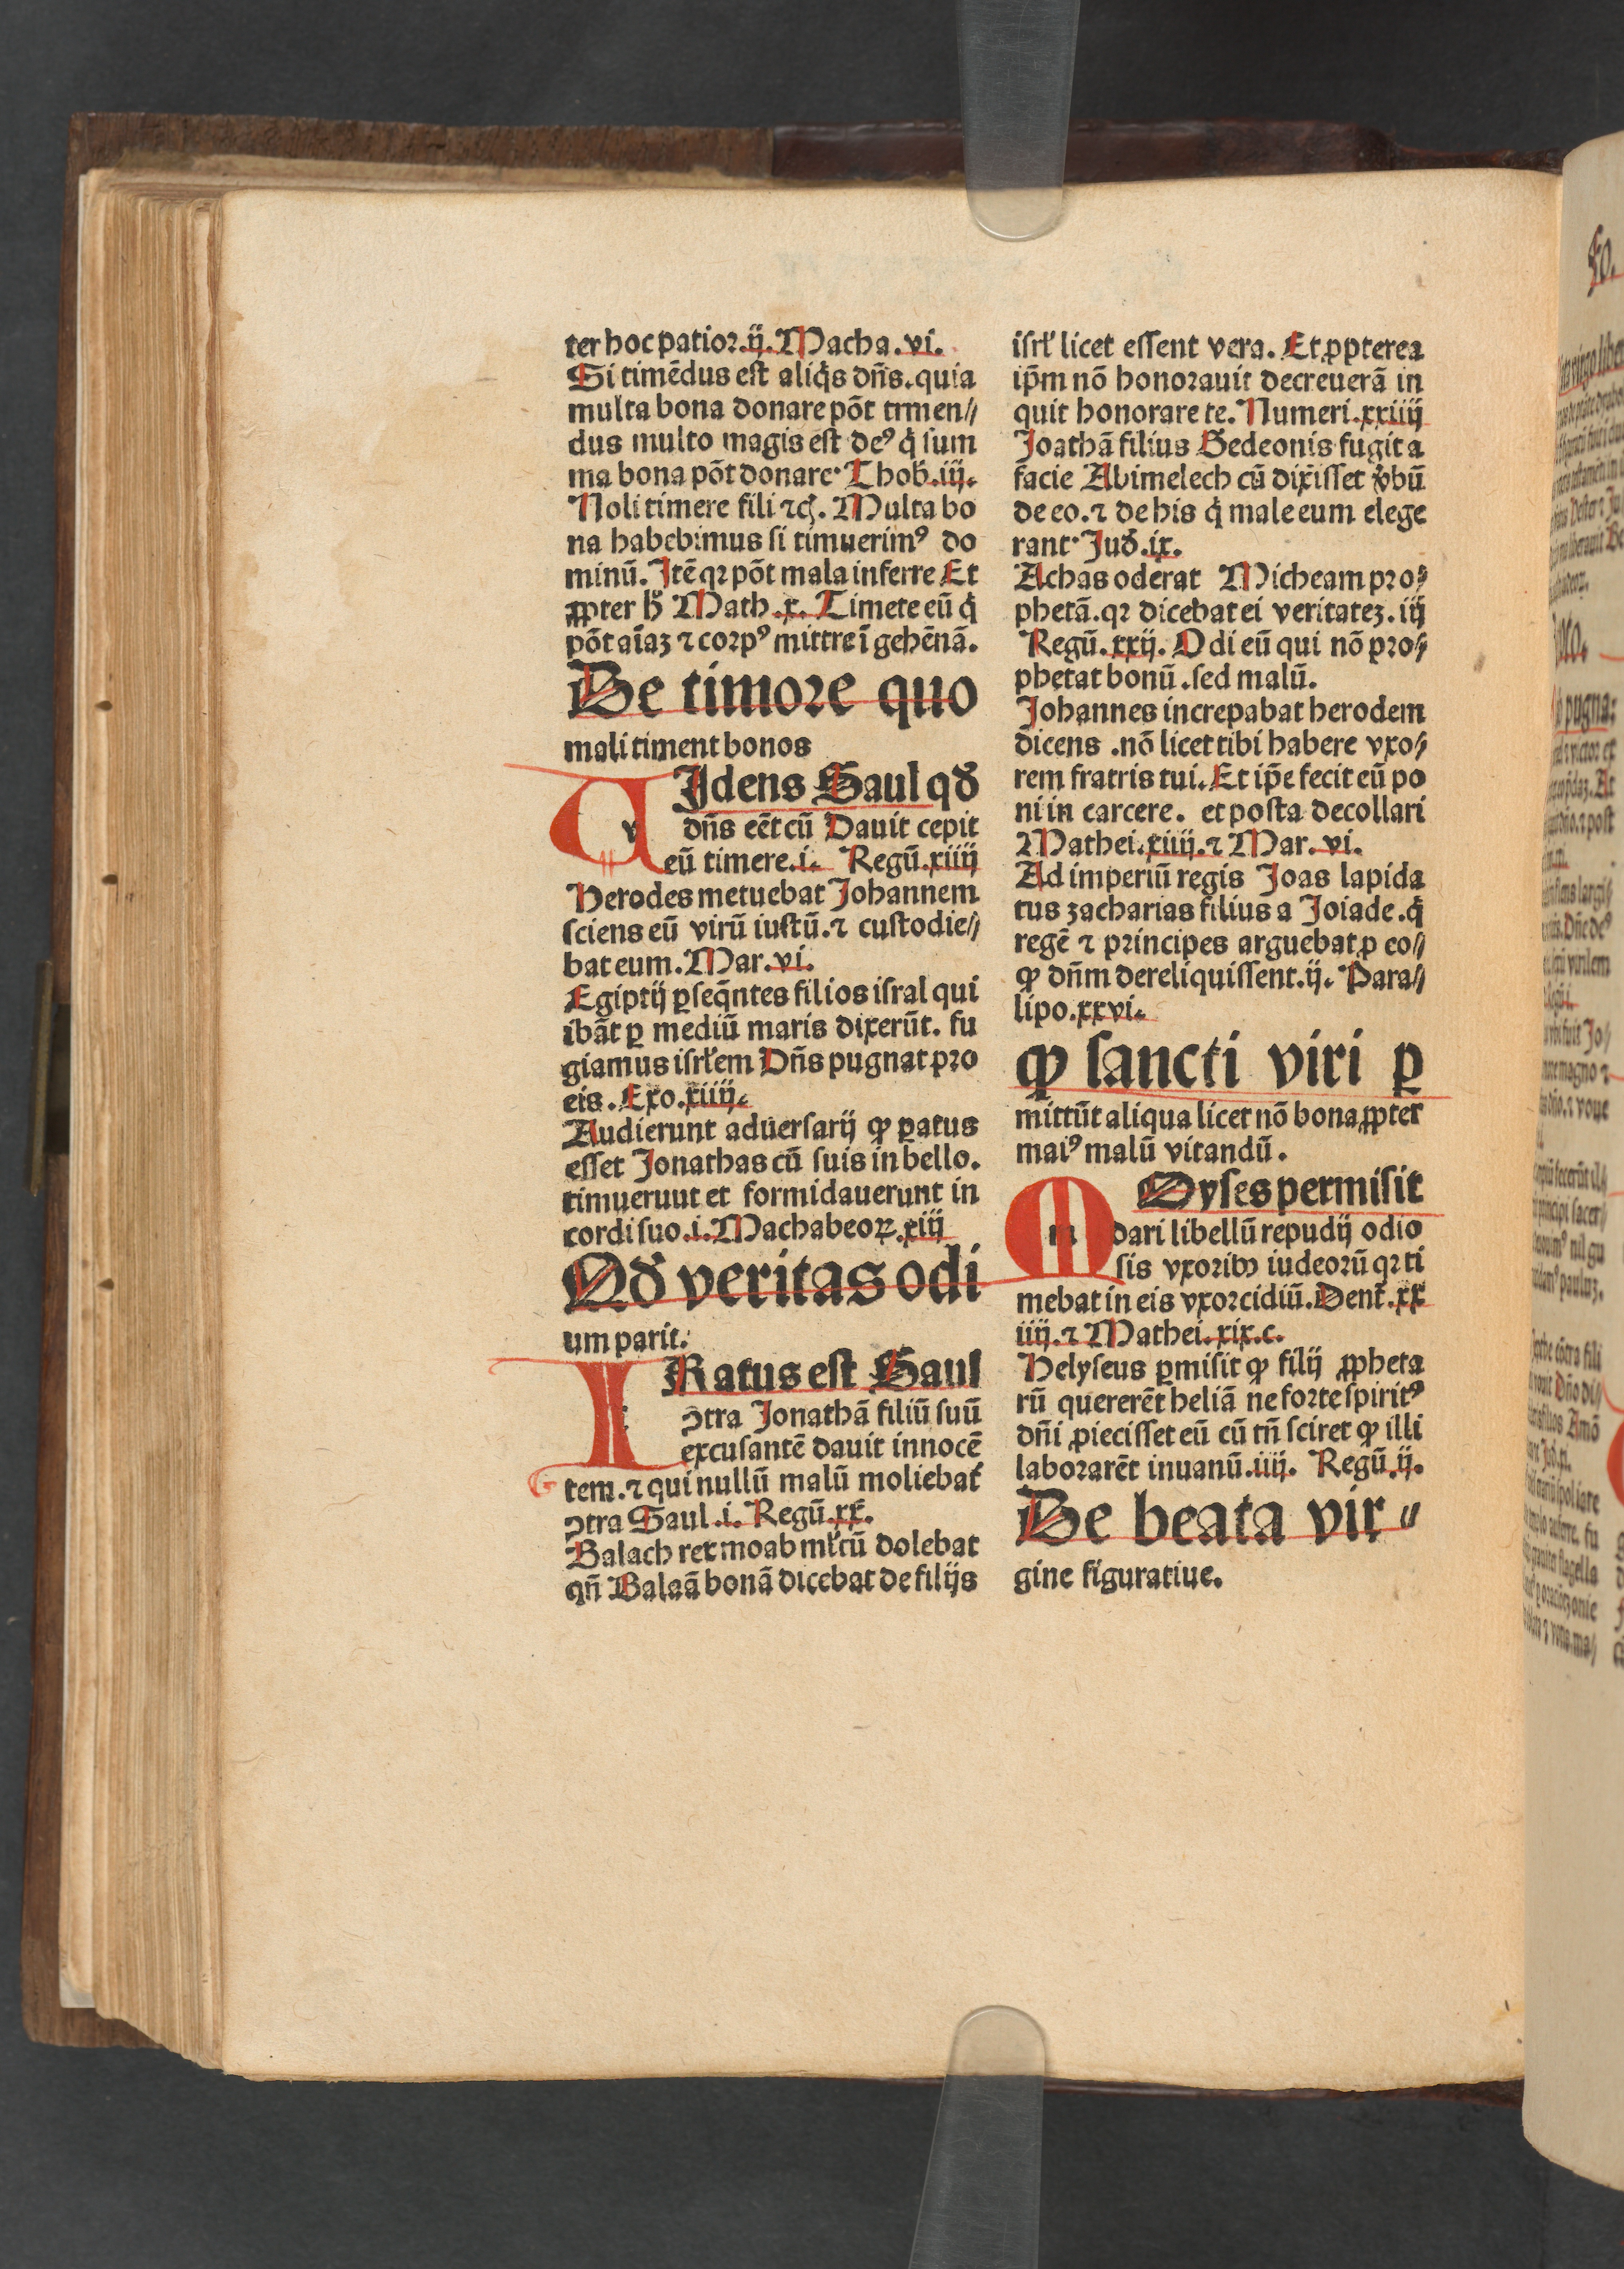 ter hoc patior.ij.Macha.vi.
Si timēdus est aliq̄s dn̄s.quia
multa bona donare pōt trmen⸗
dus multo magis est deꝰ q̇ sum
ma bona pōt donare· Thob.iij.
Noli timere fili ⁊cꝭ. Multa bo
na habebimus si timuerimꝰ do
minū. Itē qꝛ pōt mala inferre Et
ꝓpter hꝰ Math.x. Timete eū q̇
pōt aīaꝫ ⁊ corpꝰ mittre ī gehēnā.
De timore quo
mali timent bonos
vIdens Saul qđ
dn̄s eēt cū Dauit cepit
eū timere.i. Regū.xiiij
Herodes metuebat Johannem
sciens eū virū iustū.⁊ custodie⸗
bat eum.Mar.vi.
Egiptij ꝑseq̄ntes filios isral qui
ibāt ꝑ mediū maris dixerūt. fu
giamus isrl̄em Dn̄s pugnat pro
eis. Exo.xiiij.
Audierunt aduersarij ꝙ ꝑatus
esset Jonathas cū suis in bello.
timueruut et formidauerunt in
cordi suo.i.Machabeoꝝ.xiij
Qđ veritas odi
um parit.
IRatus est Saul
ↄtra Jonathā filiū suū
excusantē dauit innocē
tem.⁊ qui nullū malū moliebat̄
ↄtra Saul.i. Regū.xx.
Balach rex moab ml̄tū dolebat
qn̄ Balaā bonā dicebat de filijs
isrl̄ licet essent vera. Et ꝓpterea
ip̄m nō honorauit decreuerā in
quit honorare te. Numeri.xxiiij
Joathā filius Gedeonis fugit a
facie Abimelech cū dixi̇sset v̄bū
de eo.⁊ de his q̇ male eum elege
rant· Juđ.ix.
Achas oderat Micheam pro⸗
phetā.qꝛ dicebat ei veritateꝫ.iij
Regū.xxij. Odi eū qui nō pro⸗
phetat bonū.sed malū.
Johannes increpabat herodem
dicens .nō licet tibi habere vxo⸗
rem fratris tui. Et ip̄e fecit eū po
ni in carcere. et posta decollari
Mathei.xiiij.⁊ Mar.vi.
Ad imperiū regis Joas lapida
tus zacharias filius a Joiade.q̇
regē ⁊ principes arguebat ꝓ eo⸗
ꝙ dn̄m dereliquissent.ij. Para⸗
lipo.xxvi.
ꝙ sancti viri ꝑ
mittūt aliqua licet nō bona ꝓpter
maiꝰ malū vitandū.
mOyses permisit
dari libellū repudij odio
sis vxoribꝫ iudeorū qꝛ ti
mebat in eis vxorcidiū.Dent̄.xx
iiij.⁊ Mathei.xix.c.
Helyseus ꝑmisit ꝙ filij ꝓpheta
rū quererēt heliā ne forte spiritꝰ
dn̄i ꝓiecisset eū cū tn̄ sciret ꝙ illi
laborarēt inuanū.iiij. Regū.ij.
De beata vir⸗
gine figuratiue.